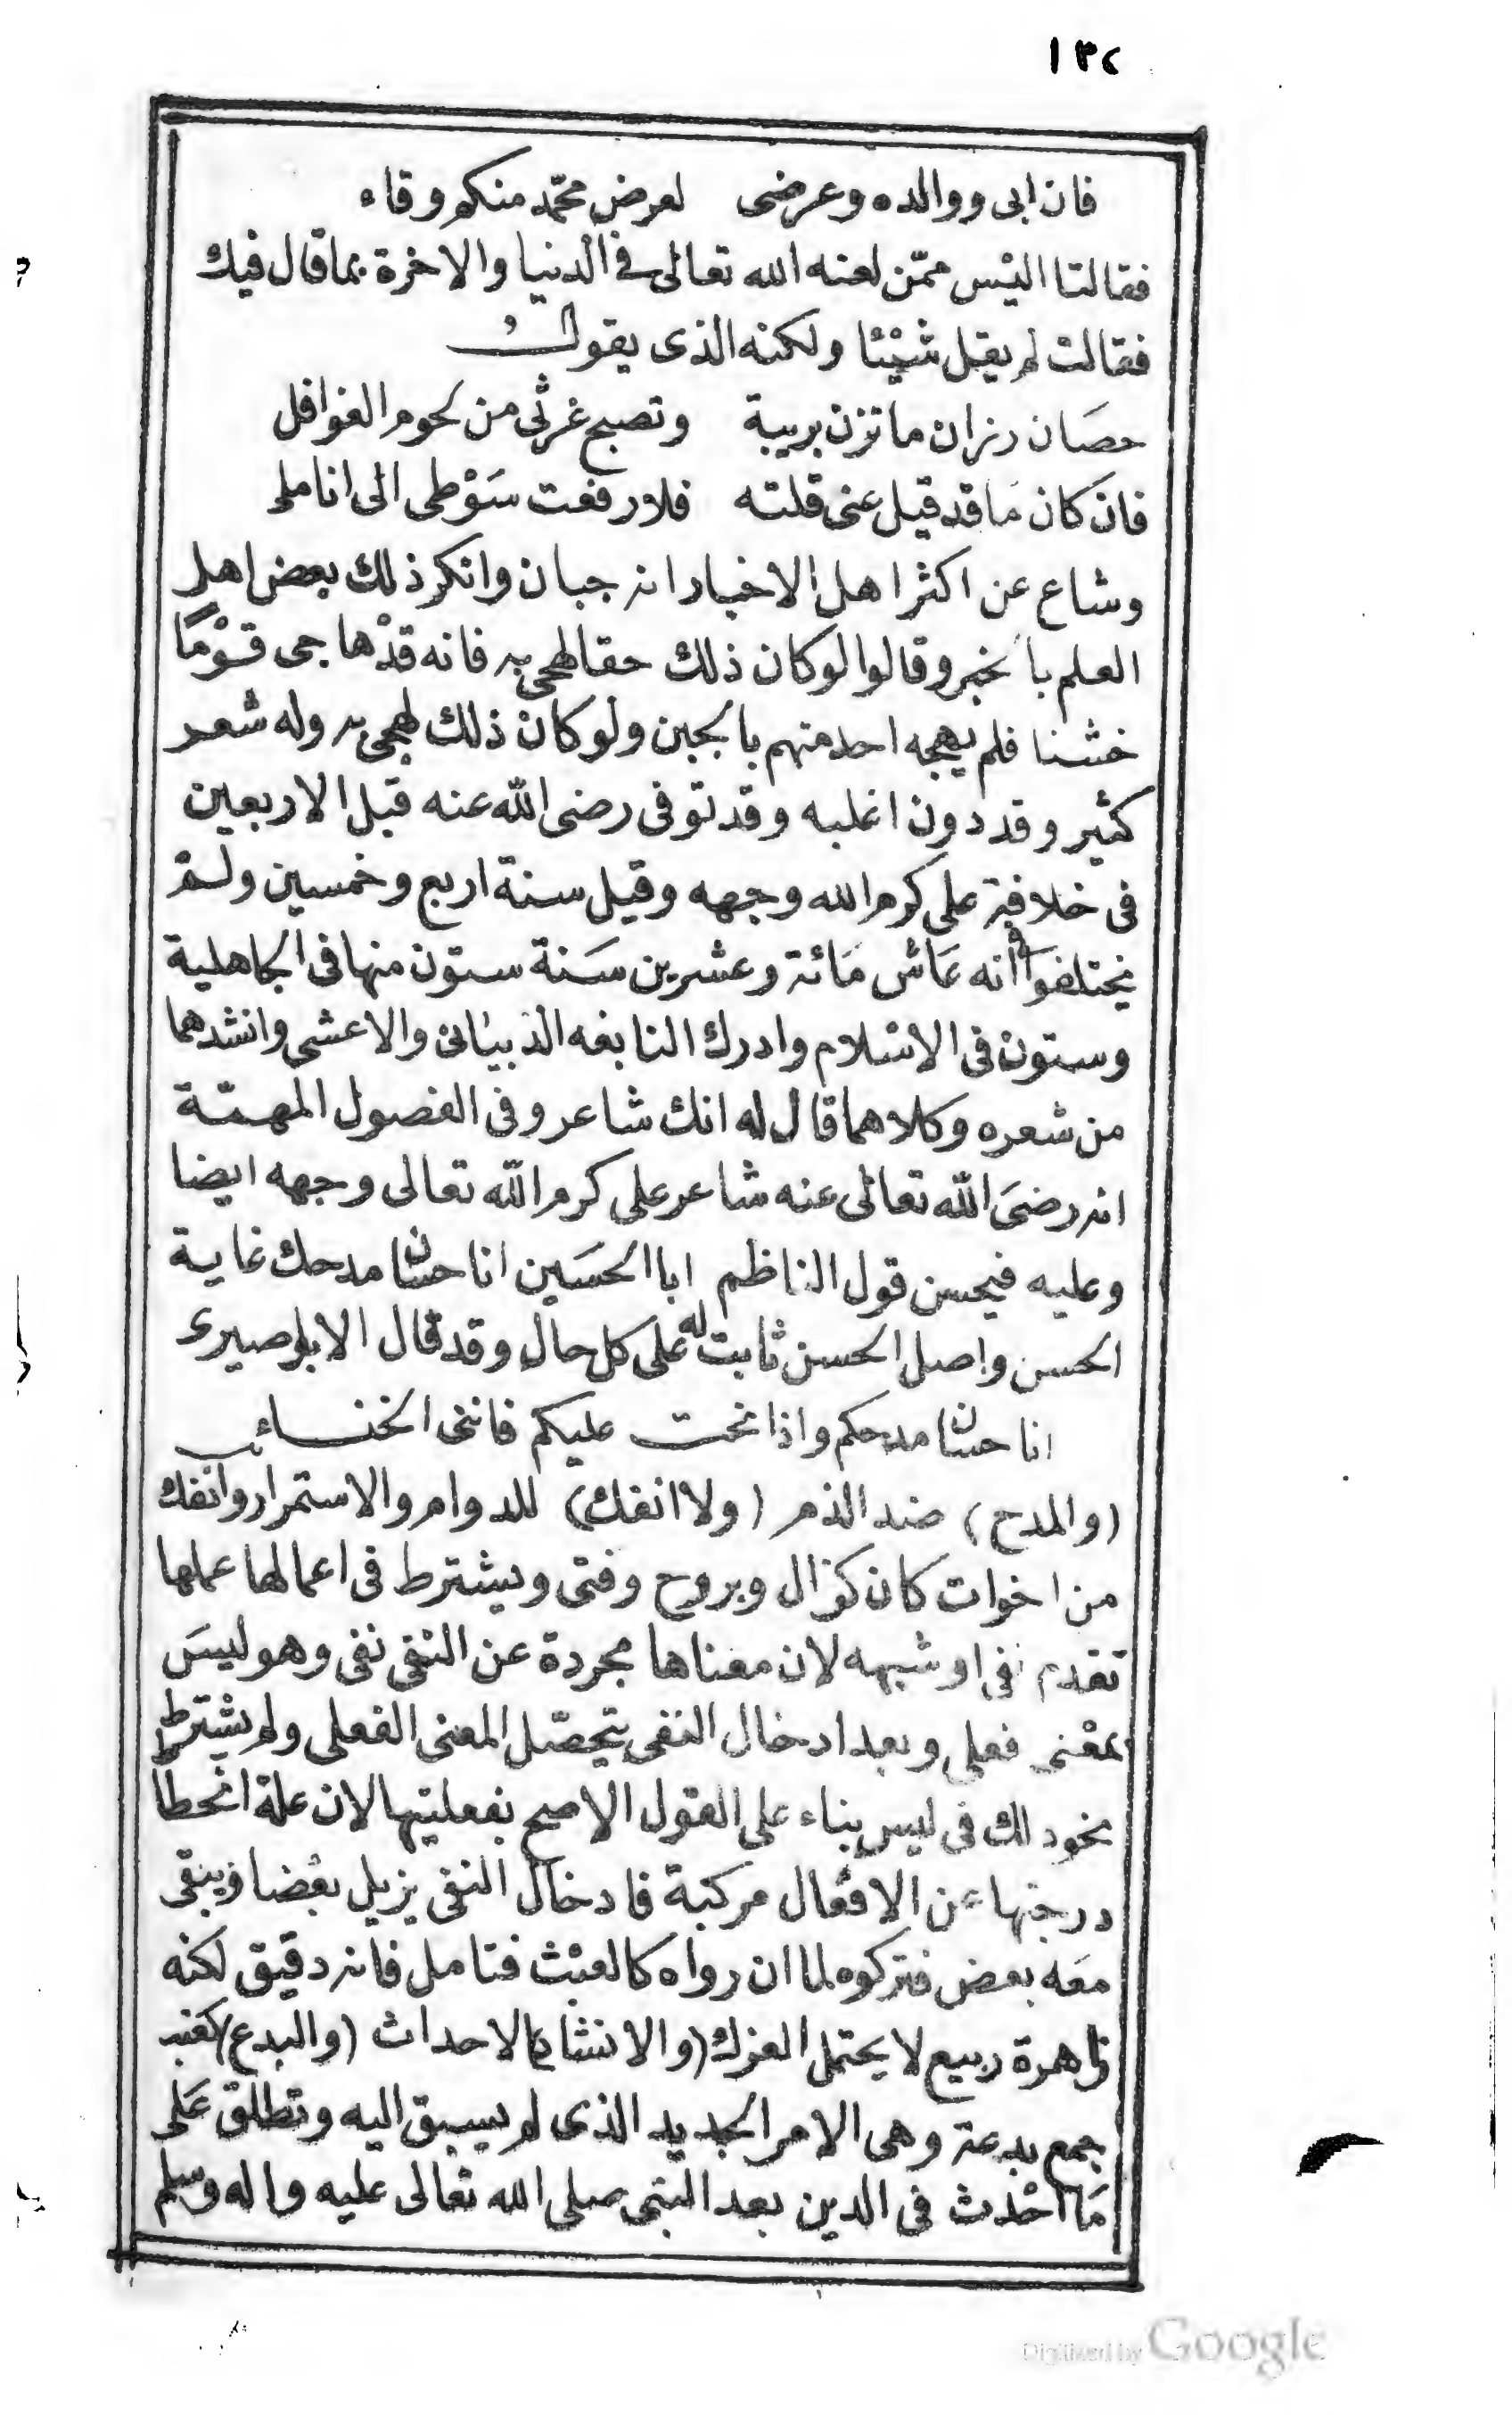 ١٣٢
فان ابى ووالده وعرضى لعرض محمّد منكم وقاء
فقالتا اليْس ممّن لعنه الله تعالى فى الدنيا والاخرة بما قال فيك
فقالت لم يقل شيْئا ولكنه الذى يقول
حصَان رزان ما تزن بريبة وتصبح غرثى من لحوم الغوافل
فان كان مَا قد قيل عنى قلته فلا رفعت سَوْطى الى اناملى
وشاع عن اكثر اهل الاخبار انه جبان وانكر ذلك بعض اهل
العلم بالخبر وقالوا لو كان ذلك حقا لهجى به فانه قدْ هاجى قوْمًا
خشنا فلم يهجه احد منهم بالجبن ولو كان ذلك لهجى به وله شعر
كثير وقد دون اغلبه وقد توفى رضى الله عنه قبل الاربعين
فى خلافة على كرم الله وجهه وقيل سنة اربع وخمسين ولمْ
يختلفوا فى انه عَاش مَائة وعشرين سَنة ستون منها فى الجاهلية
وستون فى الاسْلام وادرك النابغه الذبيَانى والاعشى وانشدهما
من شعره وكلاهما قال له انك شاعر وفى الفصول المهمّة
انه رضىَ الله تعالى عنه شاعر على كرم الله تعالى وجهه ايضا
وعليه فيحسن قول الناظم ابا الحسَين انا حسان مدحك غاية
الحسن واصل الحسن ثابت له على كل حال وقد قال الابوصيرى
انا حسان مدحكم واذا نحت عليكم فاننى الخنساء
(والمدح) ضد الذم (ولا انفك) للدوام والاستمرار وانفك
من اخوات كان كزال وبروح وفتى ويشترط فى اعمالها عملها
تقدم نفى او شبهه لان معناها مجردة عن النفى نفى وهو ليسَ
بمعْنى فعلى وبعد ادخال النفى يتحصّل المعنى الفعلى ولم يشترط
نحو ذلك فى ليس بناء على القول الاصح بفعليتها لان علة انحطا
درجتها عن الافعال مركبة فادخال النفى يزيل بعْضا ويبقى
معَه بعض فتركوه لما ان رواه كالعبْث فتامل فانه دقيق لكنه
زاهرة ربيع لا يحتمل العزك (والانشا) الاحداث (والبدع) كعنب
جمع بدعة وهى الامر الجديد الذى لم يسبق اليه وتطلق عَلى
مَا احْدث فى الدين بعد النبى صلى الله تعالى عليه واله وسلم
Digitized by Google